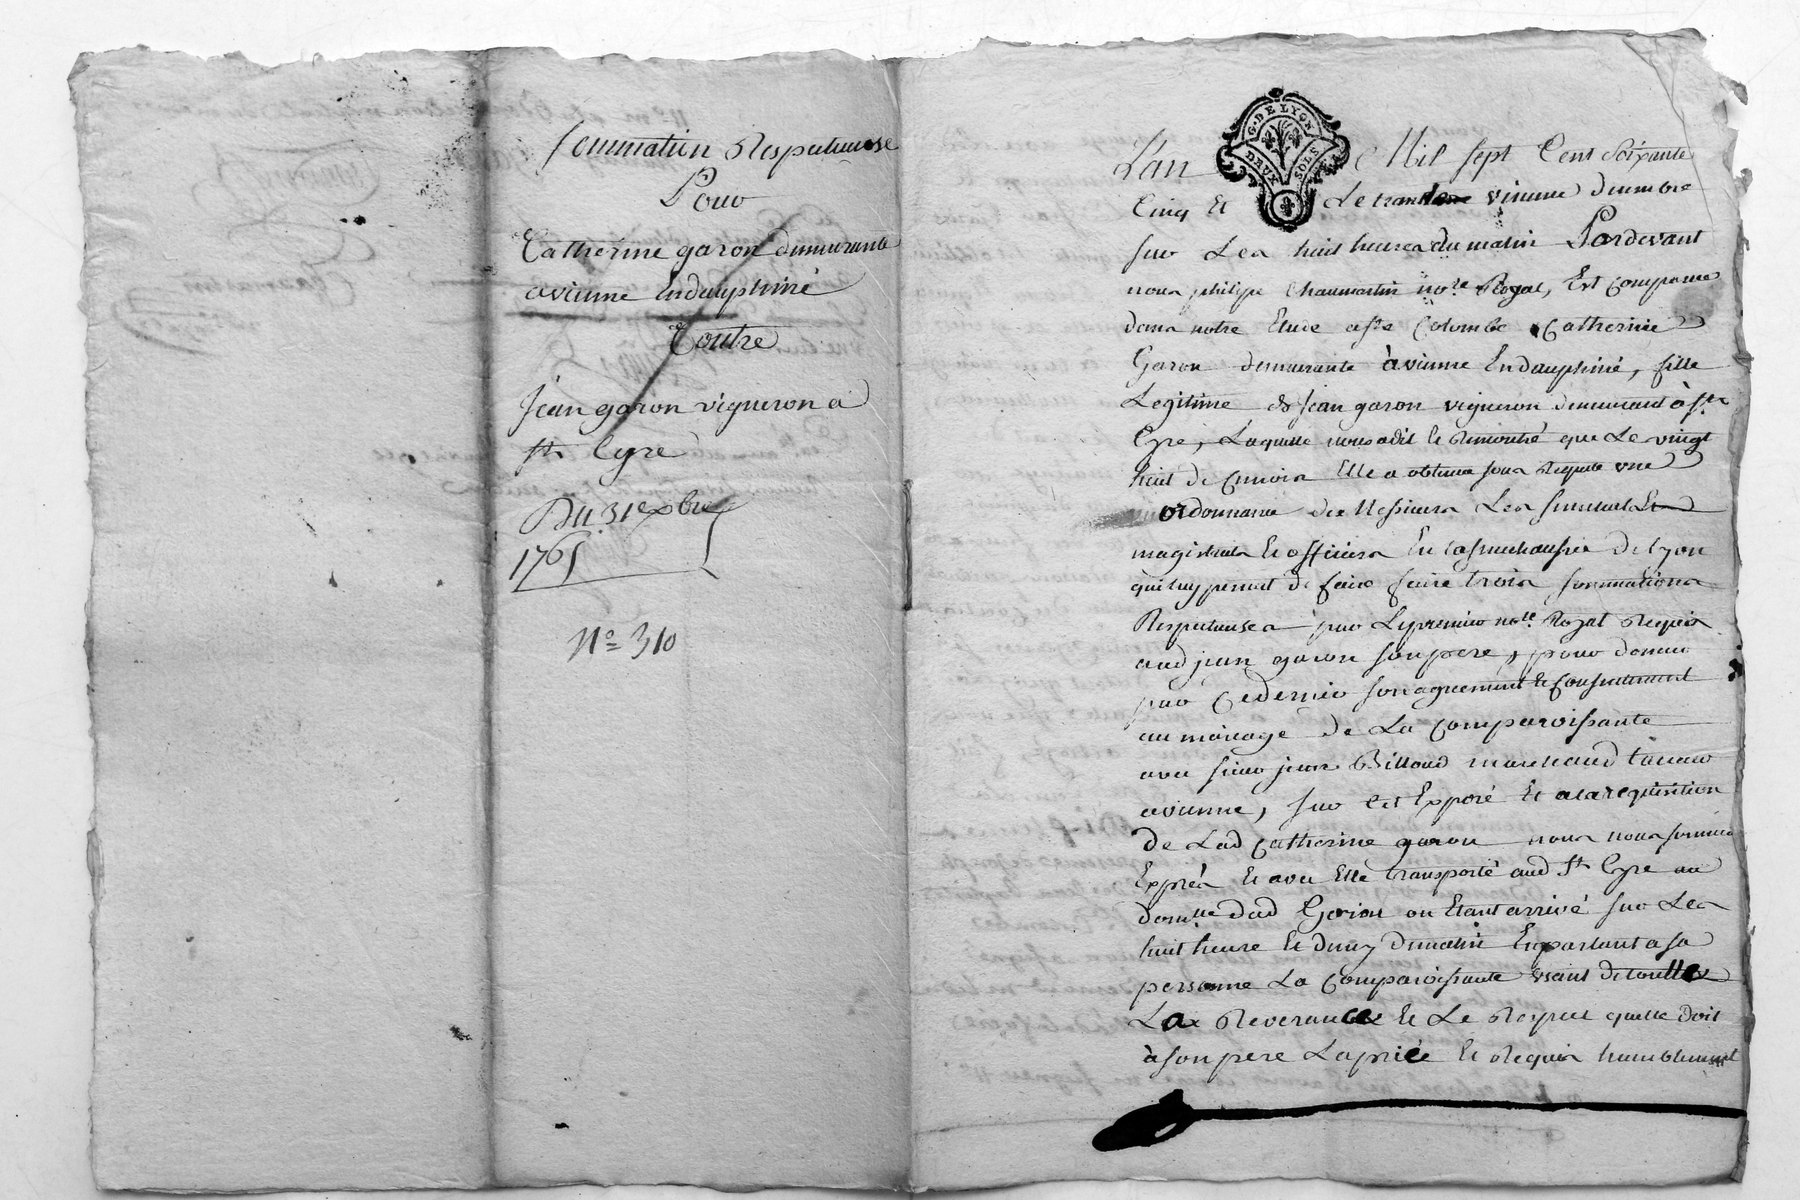 Sommation Respectueuse
Pour
Catherine garon demeurante
a vienne En dauphiné
Contre
Jean garon vigneron a
st Cyre
Du 31e xbre
1765
No 310
G. DE LYON
DEUX SOLS
L'an Mil sept Cent Soixante
Cinq Et Le trante vnieme decembre
sur Les huit heures du matin Pardevant
nous philipe Chaumartin nore Royal, Est Comparue
dans notre Etude a ste Colombe Catherine
Garon demeurante à vienne En dauphiné, fille
Legitime de Jean garon vigneron demeurant à st
Cyre, Laquelle nous a dit Et Remontré que Le vingt
huit de Ce mois Elle a obtenue sous Requete vne
ordonnance de Messieurs Les
magistrats Et officiers En La senechaussée de Lyon
qui luy permet de faire faire trois sommations
Respectueuses par Le premier nore Royal Requis
aud jean garon son pere, pour donner
par Ce dernier son agreement Et Consentement
au mariage de La Comparoissante
avec sieur jean Billoud marchand
a vienne, sur Cet Exposé Et a la requisition
de Lad Catherine garon nous nous sommes
Exprès Et avec Elle transporté aud St Cyre au
domlle dud Garon ou Etant arrivé sur Les
huit heure Et demy du matin En parlant a sa
personne La Comparoissante vsant de toutte
La Reverance Et Le Respect quelle doit
à son pere La priée Et Requis humblement